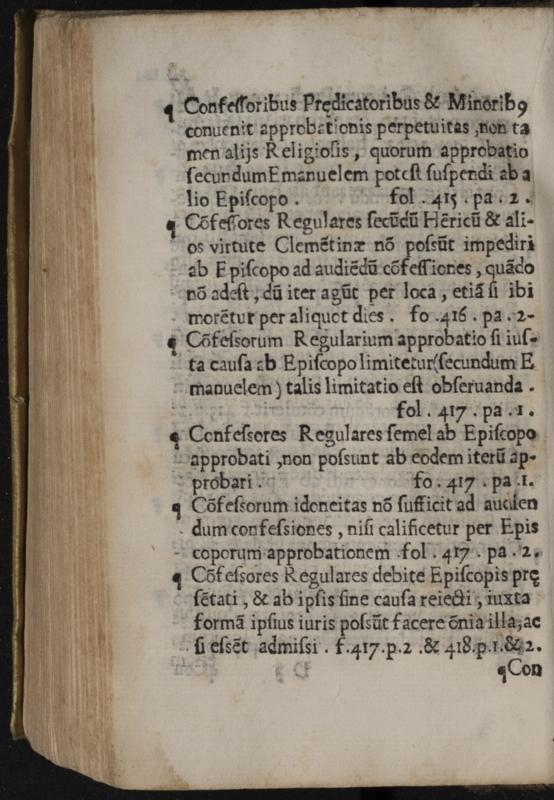 ¶ Confeſſoribus Prędicatoribus & Minoribꝯ
conuenit approbationis perpetuitas ,non ta
men alijs Religioſis , quorum approbatio
ſecundum Emanuelem poteſt ſuſpendi ab a
lio Epiſcopo . fol . 415 . pa . 2 .
¶ Cõfeſſores Regulares ſecũdũ Hẽricũ & ali-
os virtute Clemẽtinæ nõ poſsũt impediri
ab Epiſcopo ad audiẽdũ cõfeſſiones , quãdo
nõ adeſt , dũ iter agũt per loca , etiã ſi ibi
morẽtur per aliquot dies . fo .416 . pa . 2-
¶ Cõfeſsorum Regularium approbatio ſi iuſ-
ta cauſa ab Epiſcopo limitetur(ſecundum E
manuelem ) talis limitatio eſt obſeruanda .
fol . 417 . pa . 1 .
¶ Confeſsores Regulares ſemel ab Epiſcopo
approbati ,non poſsunt ab eodem iterũ ap-
probari . fo . 417 . pa .1.
¶ Cõfeſsorum idoneitas nõ ſufficit ad audien
dum confeſsiones , niſi calificetur per Epiſ
coporum approbationem .fol . 417 . pa . 2.
¶ Cõfeſsores Regulares debite Epiſcopis prę
ſẽtati , & ab ipſis ſine cauſa reiecti , iuxta
formã ipſius iuris poſsũt facere õnia illa,ac
ſi eſsẽt admiſsi . f.417.p.2 .& 418.p.1.& 2.
¶Con